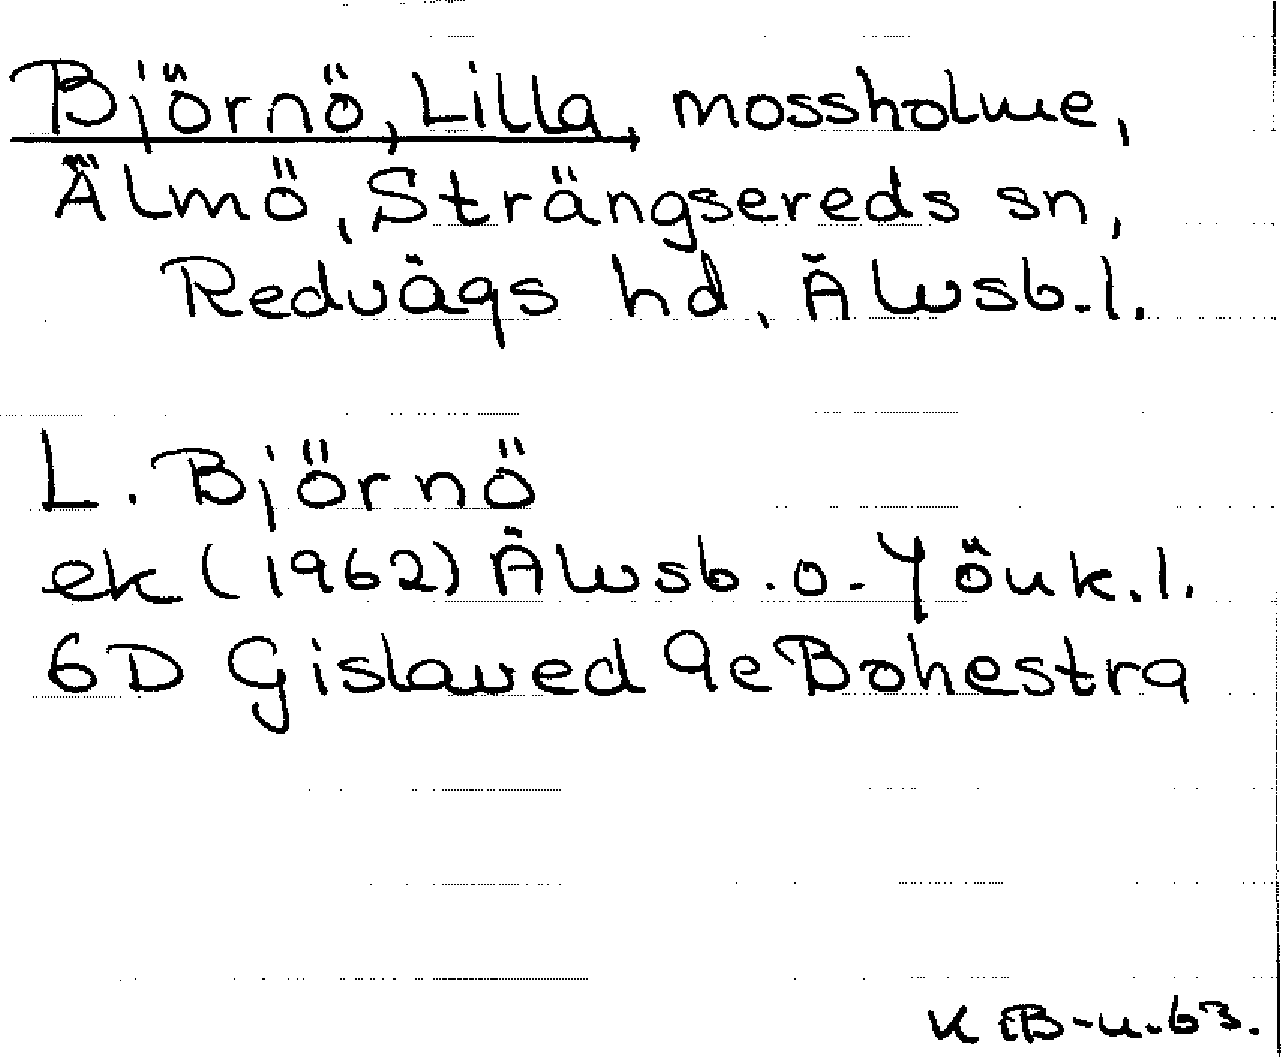 Björnö, Lilla, mossholme,
Älmö, Strängsereds sn,
Redvägs hd, Älvsb.l.
L. Björnö
ek (1962) Älvsb. o. Jönk.l.
6D Gislaved 9e Bohestra